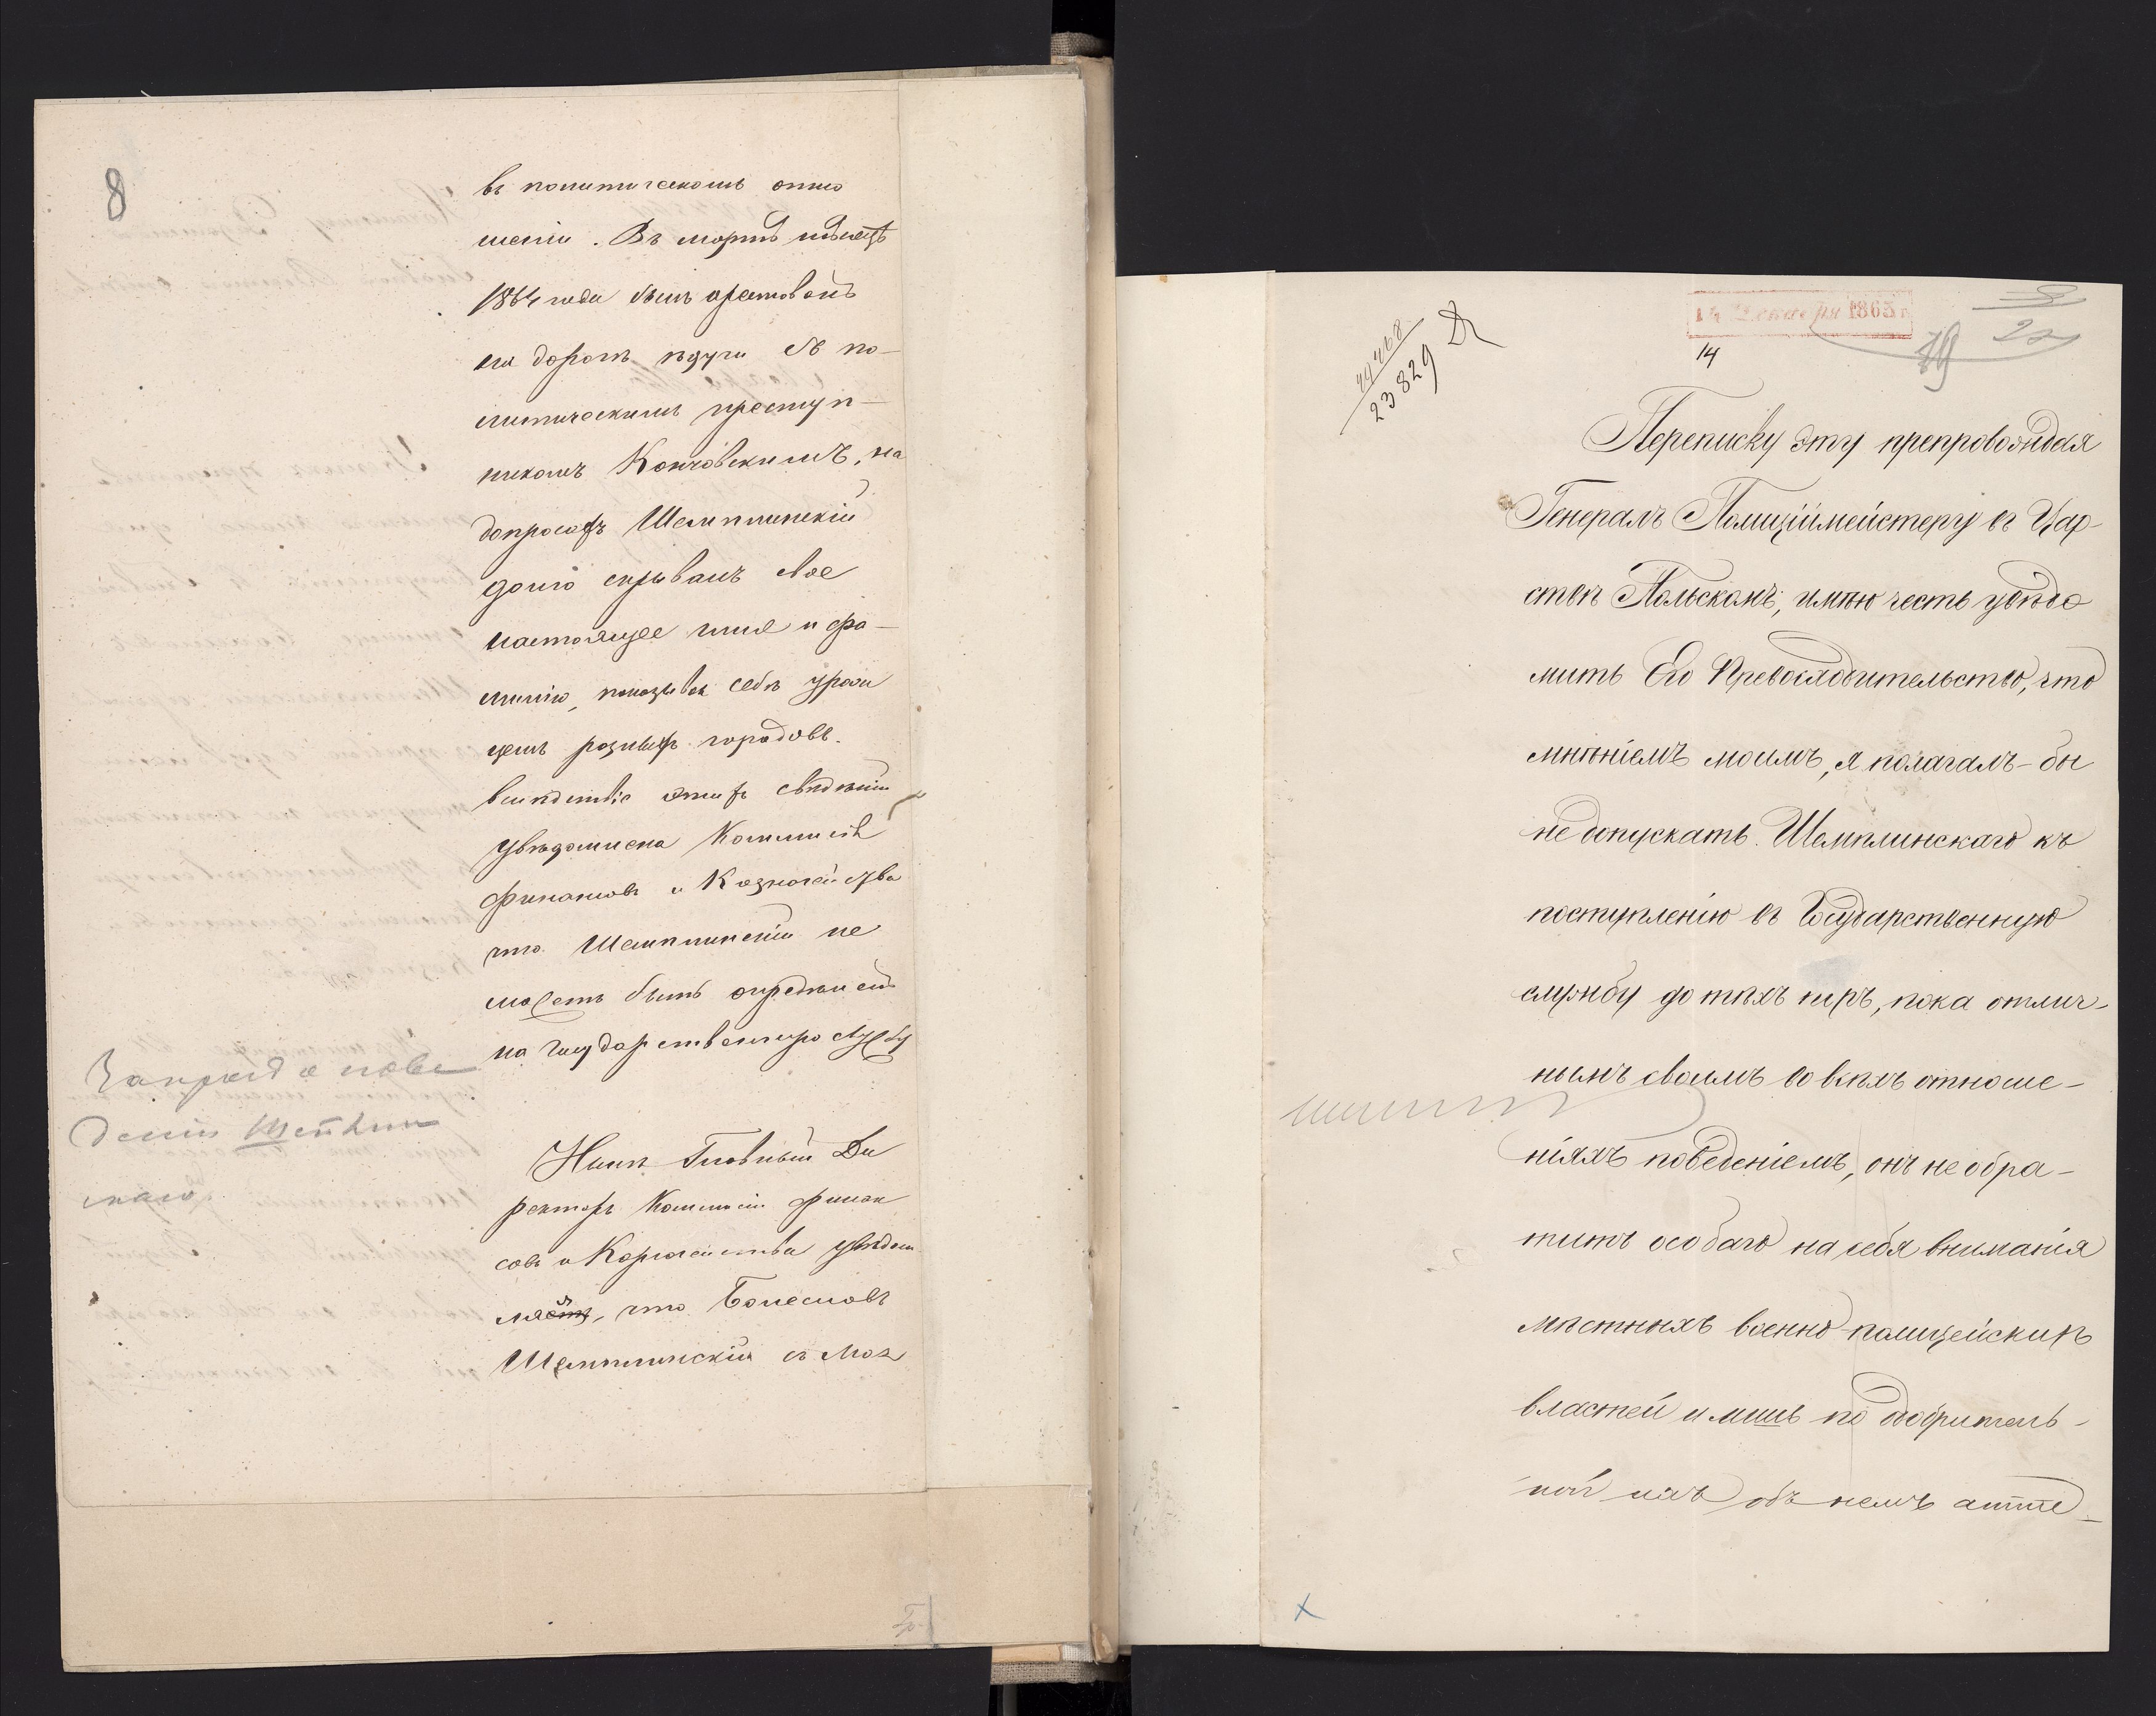 8
въ политическомъ отно
шеніи. Въ мартѣ мѣсяцѣ
1864 года былъ арестованъ
на дорогѣ ѣдучи съ по-
литическимъ преступ-
никомъ Кончовскимъ, на
допросахъ Шемплинскій
долго скрывалъ свое
настоящее имя и фа-
милію, показывая себя урожен
цемъ разныхъ городовъ.
вслѣдствіе этихъ свѣдѣній
увѣдомлена Коммисія
Финансовъ и Казначейства
что Шемплинскій не
можетъ быть опредѣленъ
на государственную службу
о пове
деніи Шемплин
скаго
Нынѣ Главный Ди
ректоръ Коммисіи Финан
совъ и Казначейства увѣдом
ляетъ, что Болеславъ
Шемплинскій съ мая
14 Декабря 1865 г.
14
23829
Переписку эту препровождая
Генералъ Полиціймейстеру въ Цар-
ствѣ Польскомъ, имѣю честь увѣдо
мить Его Превосходительство, что
мнѣніемъ моимъ, я полагалъ-бы
не допускать Шемплинскаго къ
поступленію въ Государственную
службу до тѣхъ поръ, пока отлич-
нымъ своимъ во всѣхъ отноше-
ніяхъ поведеніемъ, онъ не обра-
титъ особаго на себя вниманія
мѣстныхъ военно-полицейскихъ
властей и лишь по одобритель-
ной ихъ объ немъ атте-